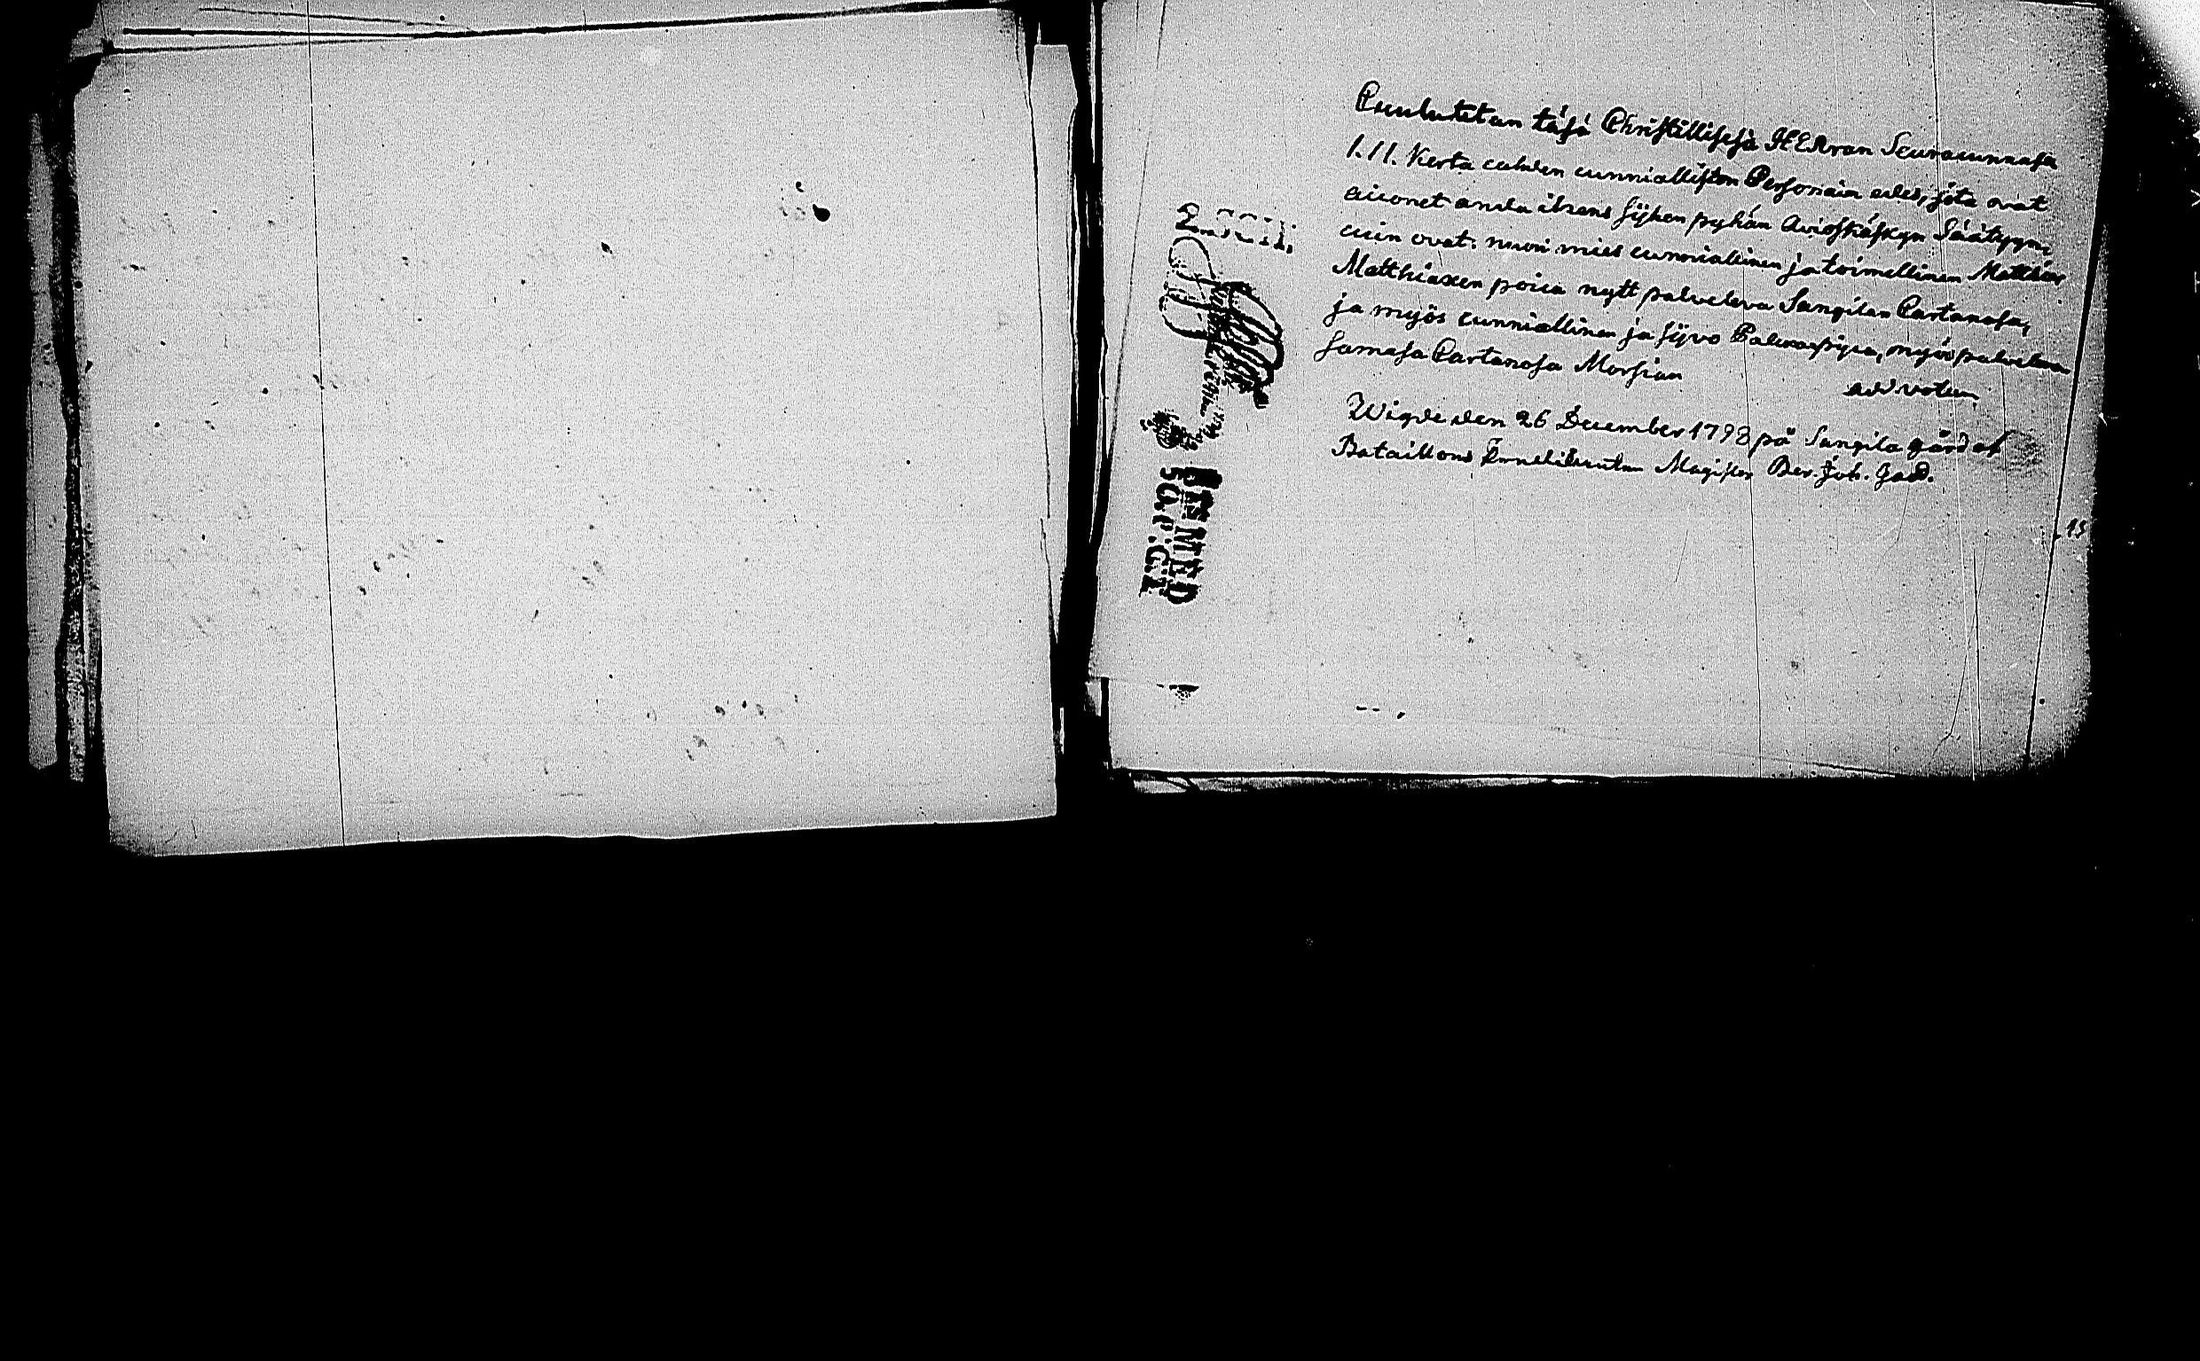 Cuulutetan täsä Christillisesä HERran Seuracunnasa
1. II. Kerta cahden cunniallisen Personain edes, jota ovat
aiconet anda itzens sijhen pyhän Avioskäskyn Säätyyn,
cuin ovat. nuori mies cunniallinen ja toimellinen Matthias
Matthiaxen poica nytt palveleva Sangilan Cartanosa,
ja myös cunniallinen ja sijvo Palcapijca, myös palveleva
samasa Cartanosa
ad votum
Wigde den 26 December 1798 på Sangila gård af
Bataillons Magister Ber. Joh.
15
BESMED